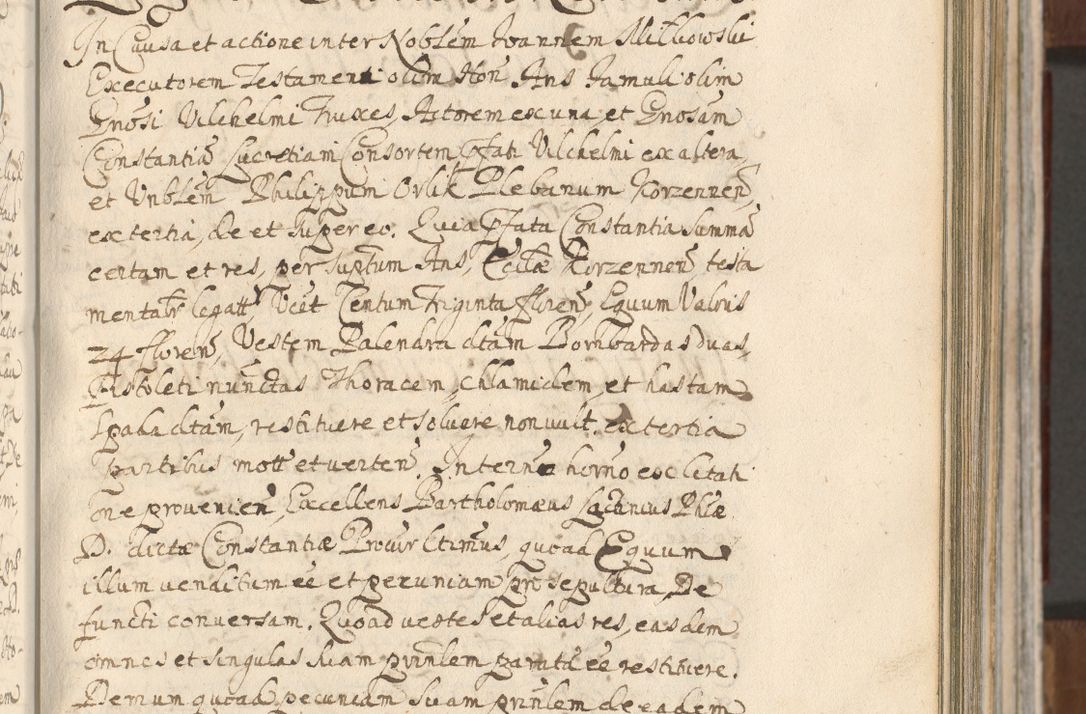 In Causa et actione inter Noblem Joannem Milkowski
Executorem Testamenti olim Hon Ans famuli olim
Gnosi Vilchelmi Fuxes, Actorem ex una, et Gnosam
Constantia Lucretiam Consortem Pfati Vilchelmi ex altera,
et Vnblem Philippum Orlik Plebanum Korzennen,
ex tertia, de et super eo. Quia Pfata Constantia Summa
certam et res, per suptum Ans, Ecclae Korzennen testa
mentalr legatt Vcit Centum triginta floren, Equum Valoris
24 floren, Vestem Palendra dtam Bombardas Duas,
Pistoleti nunctas Thoracem, chlamidem, et hastam
Spada dtam, restituere et soluere non vult. ex tertia
partibus mott et verten. In termno horno ex citati
one prouenien, Excellens Bartholomaeus Phiae
D. dictae Constantiae Procur ltimus, quoad Equum
illum venditum ee et pecuniam pro sepultura De
functi conuersam. Quoad vestes et alias res, easdem
omnes et singulas suam prinlem parata ee restituere.
Demum quoad pecuniam suam prinlem de eadem